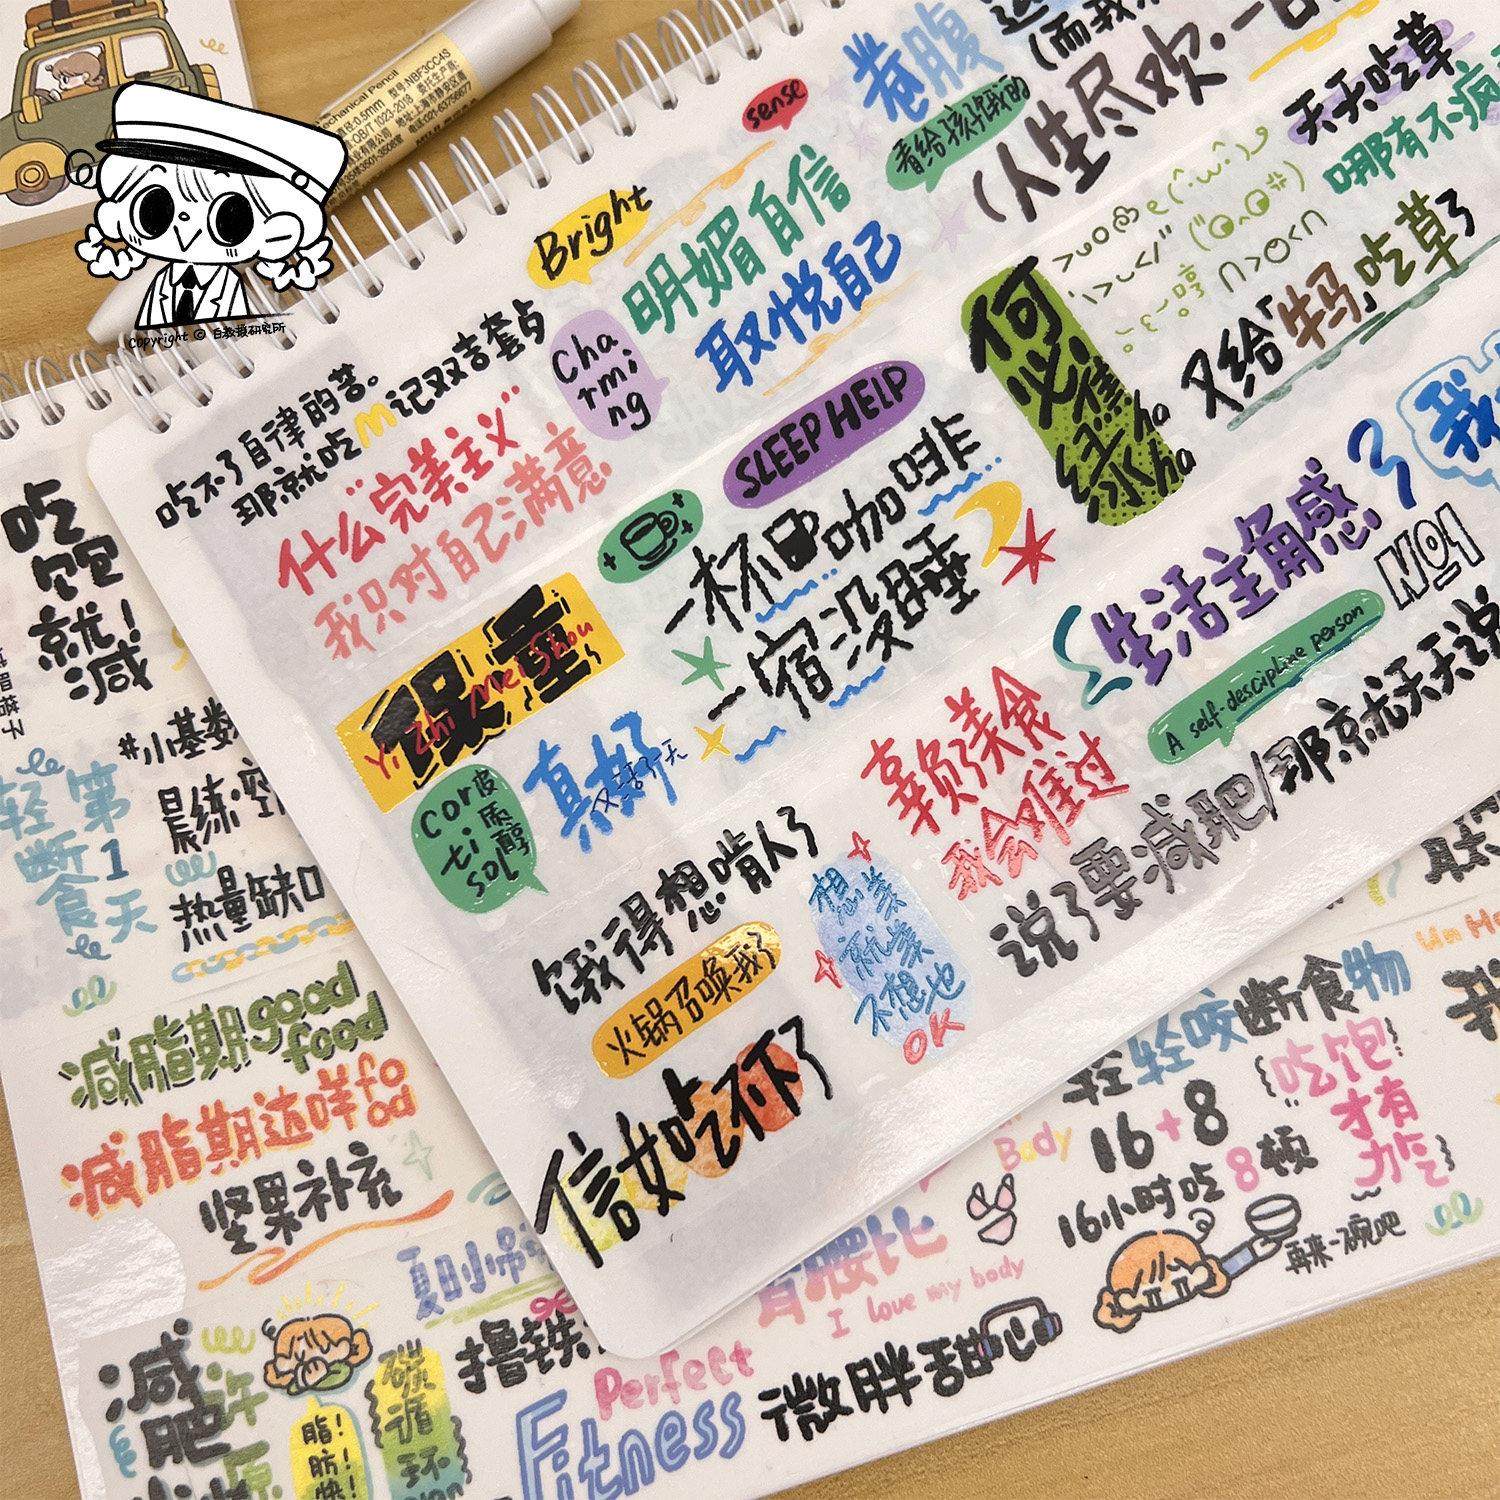 Mechanical Pencil
0.5mm
型号:NBF3CC4S
Copyright © 白教授研究所
吃不了自律的苦。
那就吃M记双吉套点
什么"完美主义"
我只对自己满意
Bright
明媚自信
取悦自己
Cha
rmi
ng
sense
卷腹
看给孩子饿的
(人生尽欢·一日
天天吃草
哪有不疯
又给「牛马」吃草了
何
必
焦
绿
ha
ha
SLEEP HELP
一杯咖啡
一宿没睡
Yi Zhi Mei Shou
Cor皮
ti质
sol醇
真好
又活一天
生活主角感
NO.1
A self-descipline person
辜负美食
我会难过
说了要减肥/那就天天说
饿得想啃人了
火锅召唤我了
信女吃不下了
想美
就美
不想也
OK
吃
饱
就
减!
#小基数
轻断食
第1天
晨练·空
热量缺口
减脂期good
food
减脂期这样fo
od
坚果补充
减
肥
脂!
肪!
快!
碳
循
环
撸铁
Perfect
Fitness
I love my body
微胖甜心
Body
轻轻咬断食物
16+8
16小时吃8顿
吃饱
才有
力气
再来一碗吧